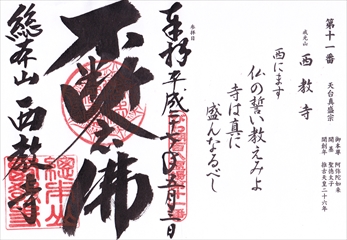 第十一番
天台真盛宗
戒光山
西教寺
御本尊 阿弥陀如来
開基 聖徳太子
開創年 推古天皇二十六年
西にます
仏の誓い教えみよ
寺は真に
盛んなるべし
奉拝
不断念佛
総本山 西教寺